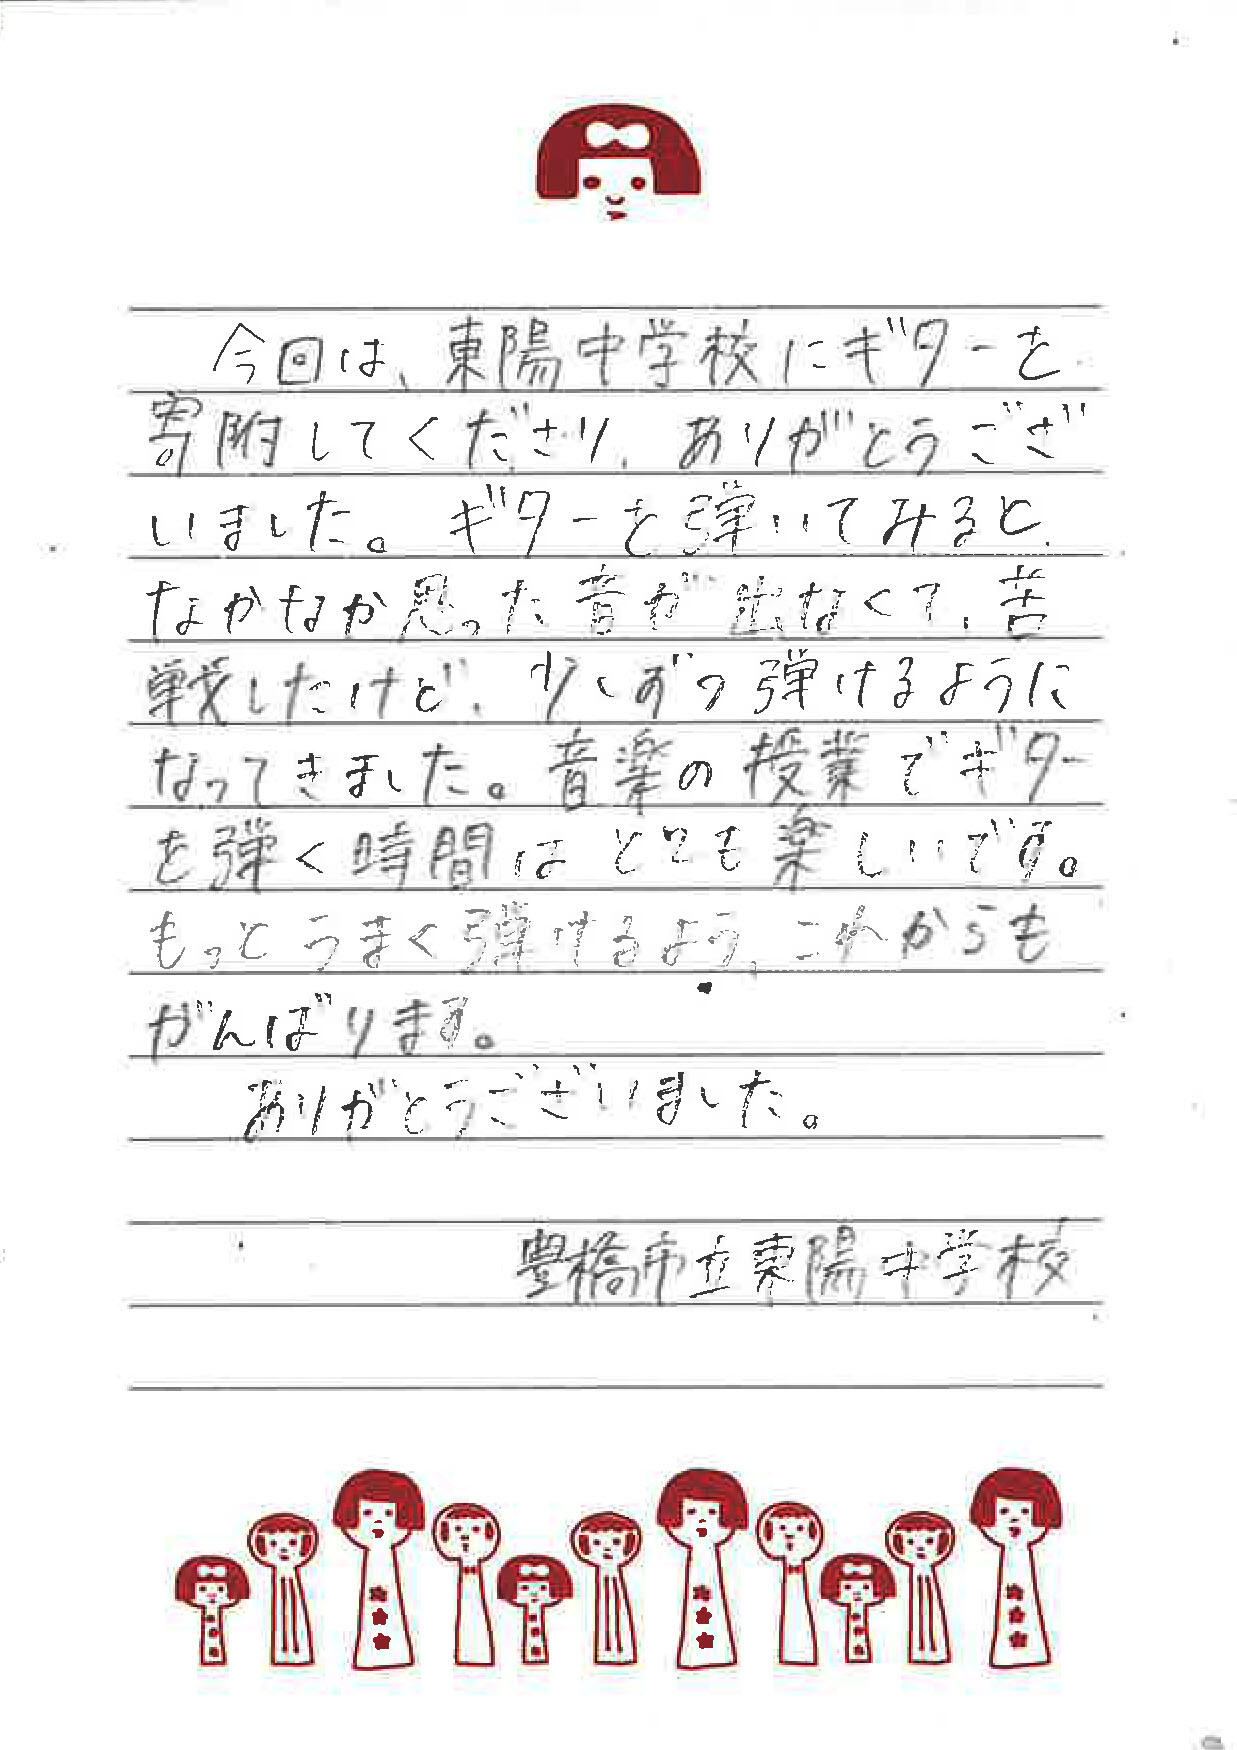 今回は、東陽中学校にギターを
寄附してくださり、ありがとうござ
いました。ギターを弾いてみると、
なかなか思った音が出なくて、苦
戦したけど、少しずつ弾けるように
なってきました。音楽の授業でギター
を弾く時間はとても楽しいです。
もっとうまく弾けるよう、これからも
がんばります。
ありがとうございました。
豊橋市立東陽中学校